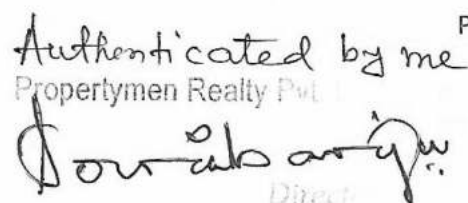 P
Authenticated by me
Propertymen Realty Pvt.
Direct